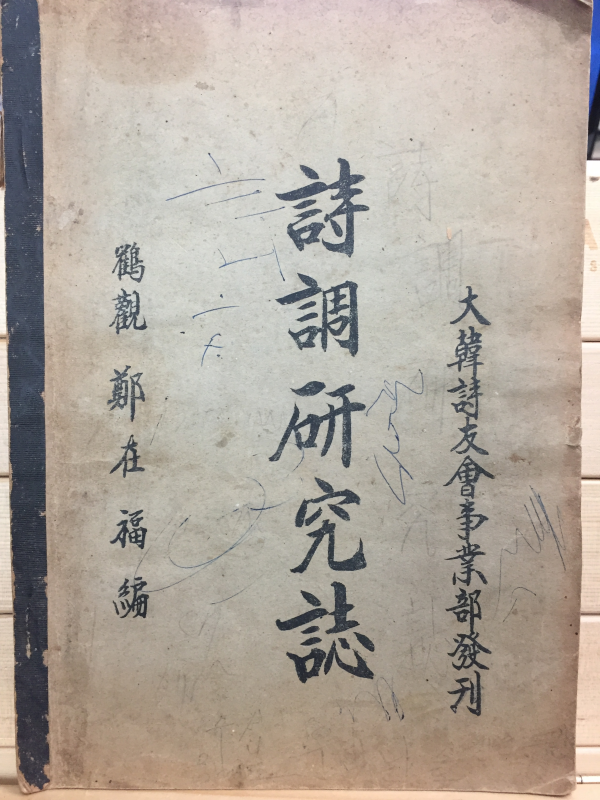 大韓詩友會事業部發刊
詩調研究誌
鶴觀 鄭在福 編